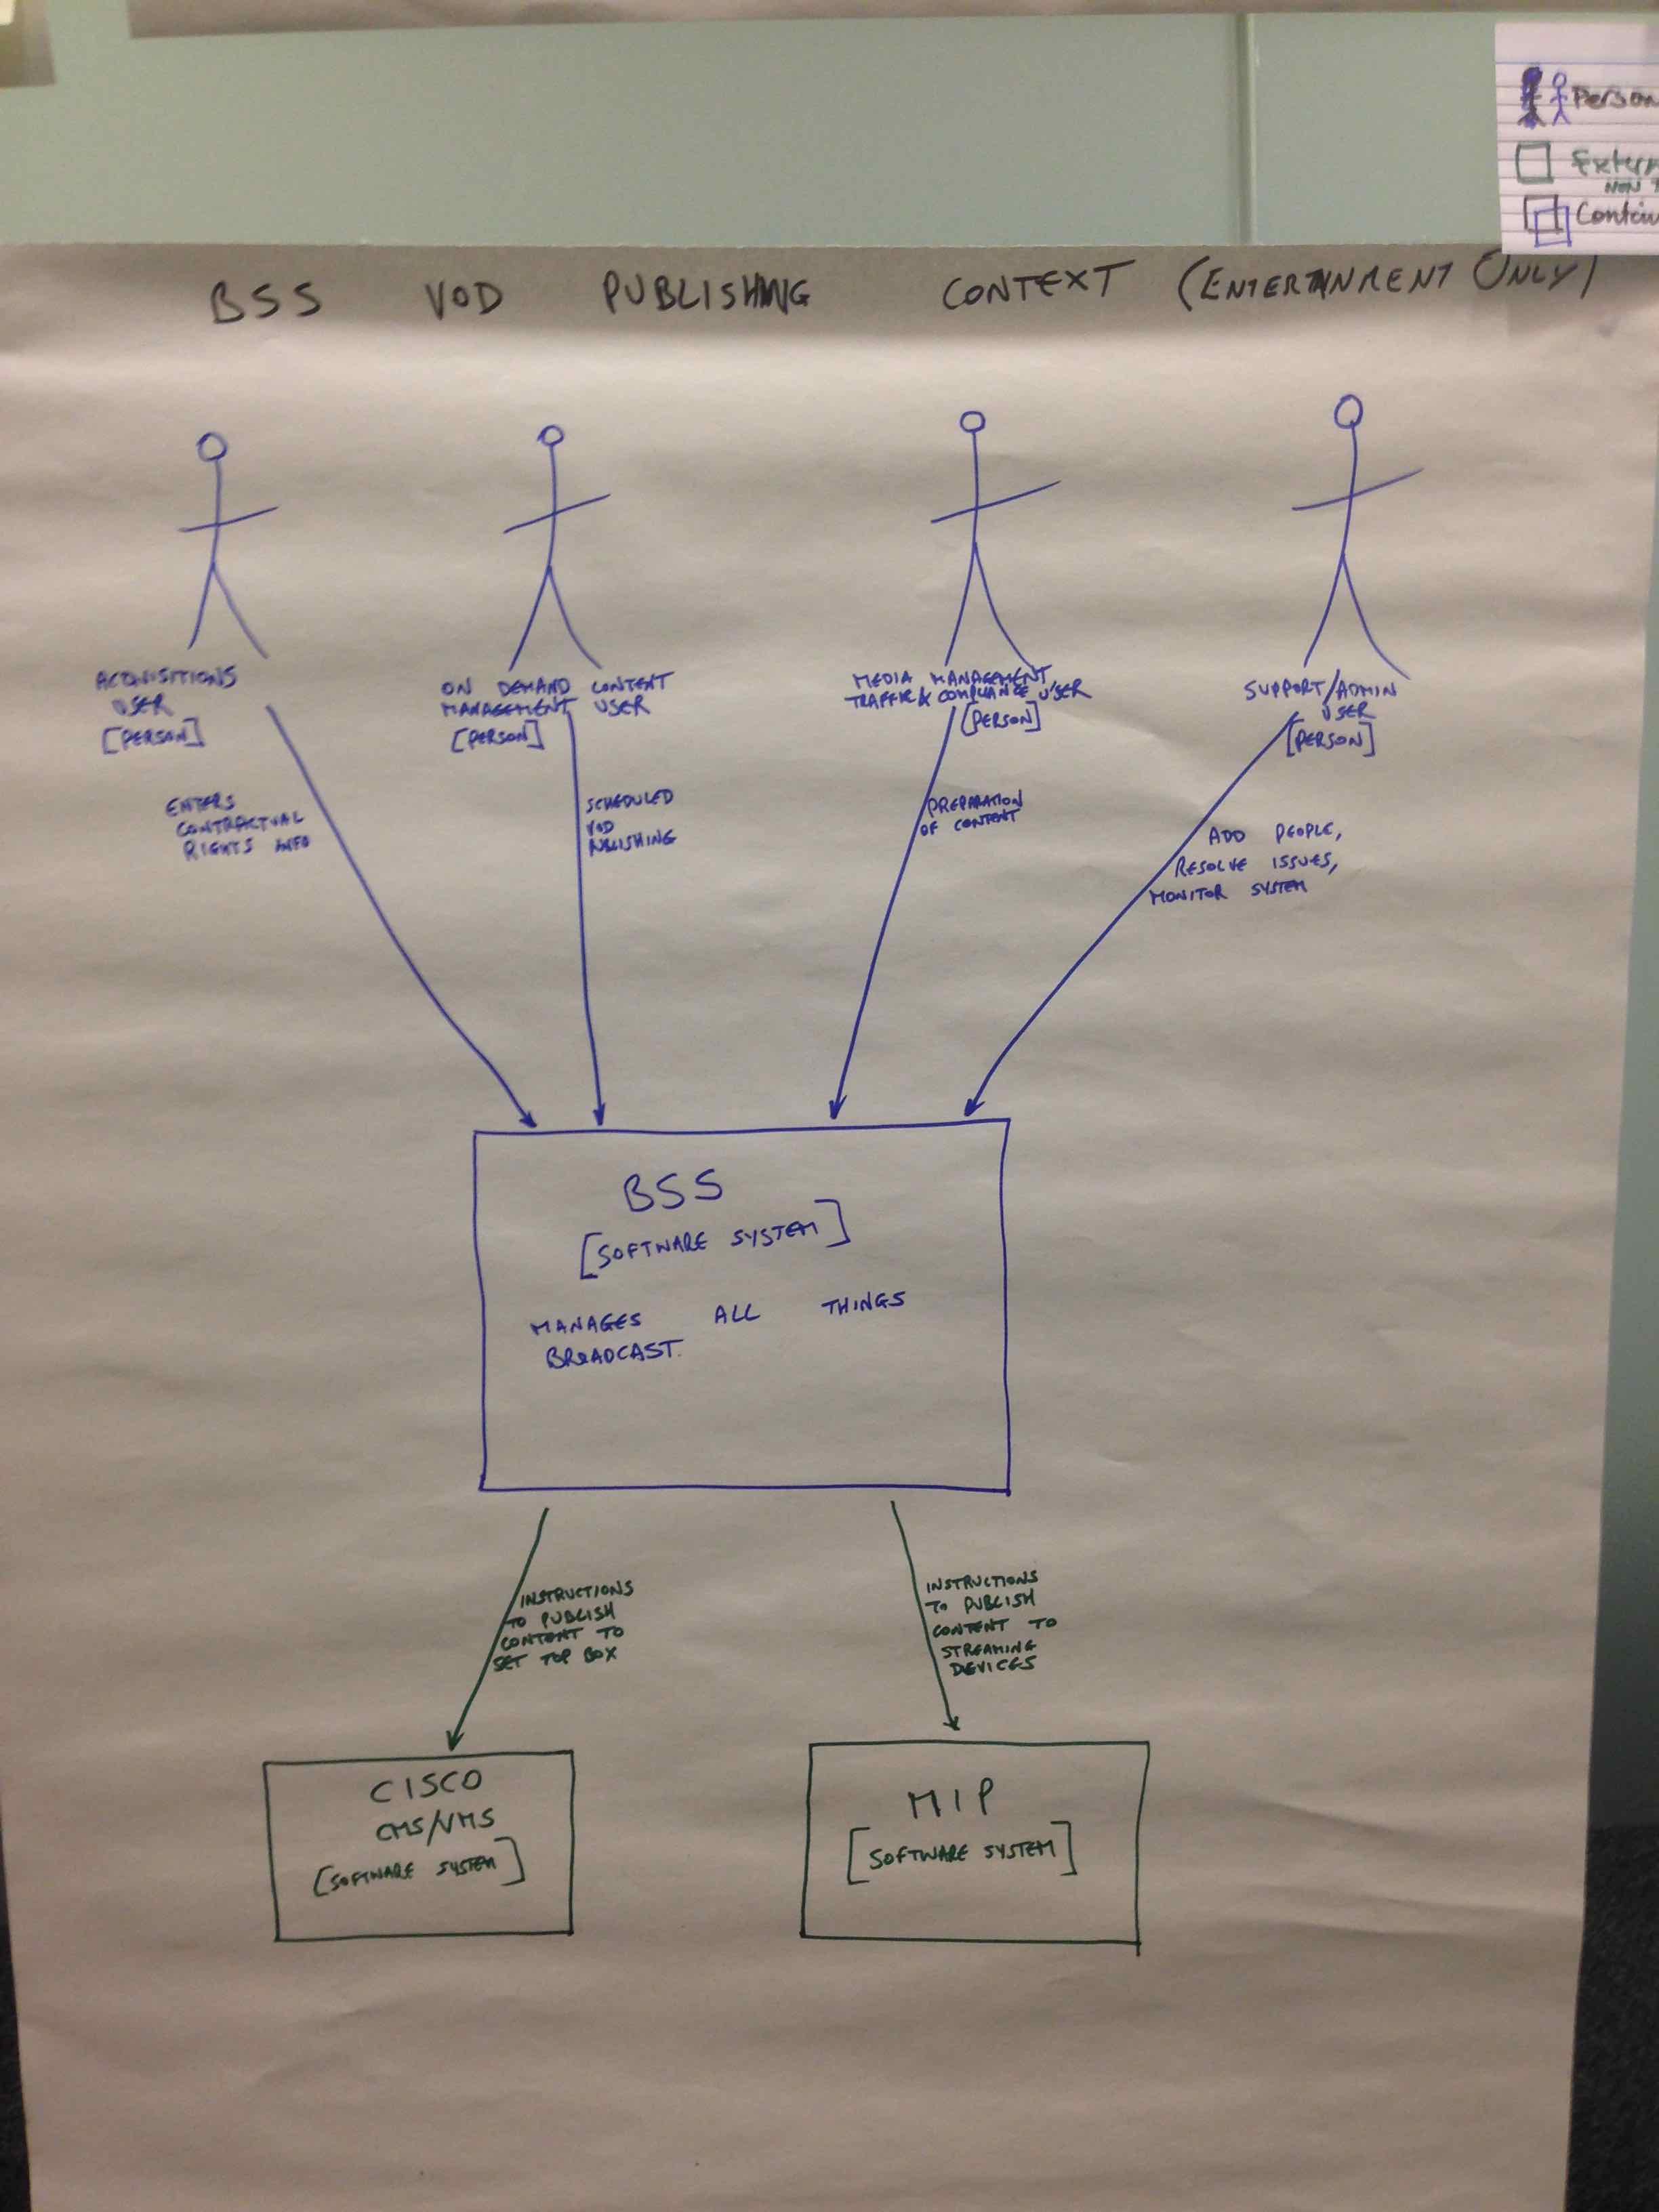 Person
Extern
NON
Contain
BSS VOD PUBLISHING CONTEXT (ENTERTAINMENT ONLY)
ACQUISITIONS
USER
[PERSON]
ON DEMAND CONTENT
MANAGEMENT USER
[PERSON]
MEDIA MANAGEMENT,
TRAFFIC & COMPLIANCE USER
[PERSON]
SUPPORT/ADMIN
USER
[PERSON]
ENTERS
CONTRACTUAL
RIGHTS INFO
SCHEDULED
VOD
PUBLISHING
PREPARATION
OF CONTENT
ADD PEOPLE,
RESOLVE ISSUES,
MONITOR SYSTEM
BSS
[SOFTWARE SYSTEM]
MANAGES ALL THINGS
BROADCAST.
INSTRUCTIONS
TO PUBLISH
CONTENT TO
SET TOP BOX
INSTRUCTIONS
TO PUBLISH
CONTENT TO
STREAMING
DEVICES
CISCO
CMS/VMS
[SOFTWARE SYSTEM]
MIP
[SOFTWARE SYSTEM]